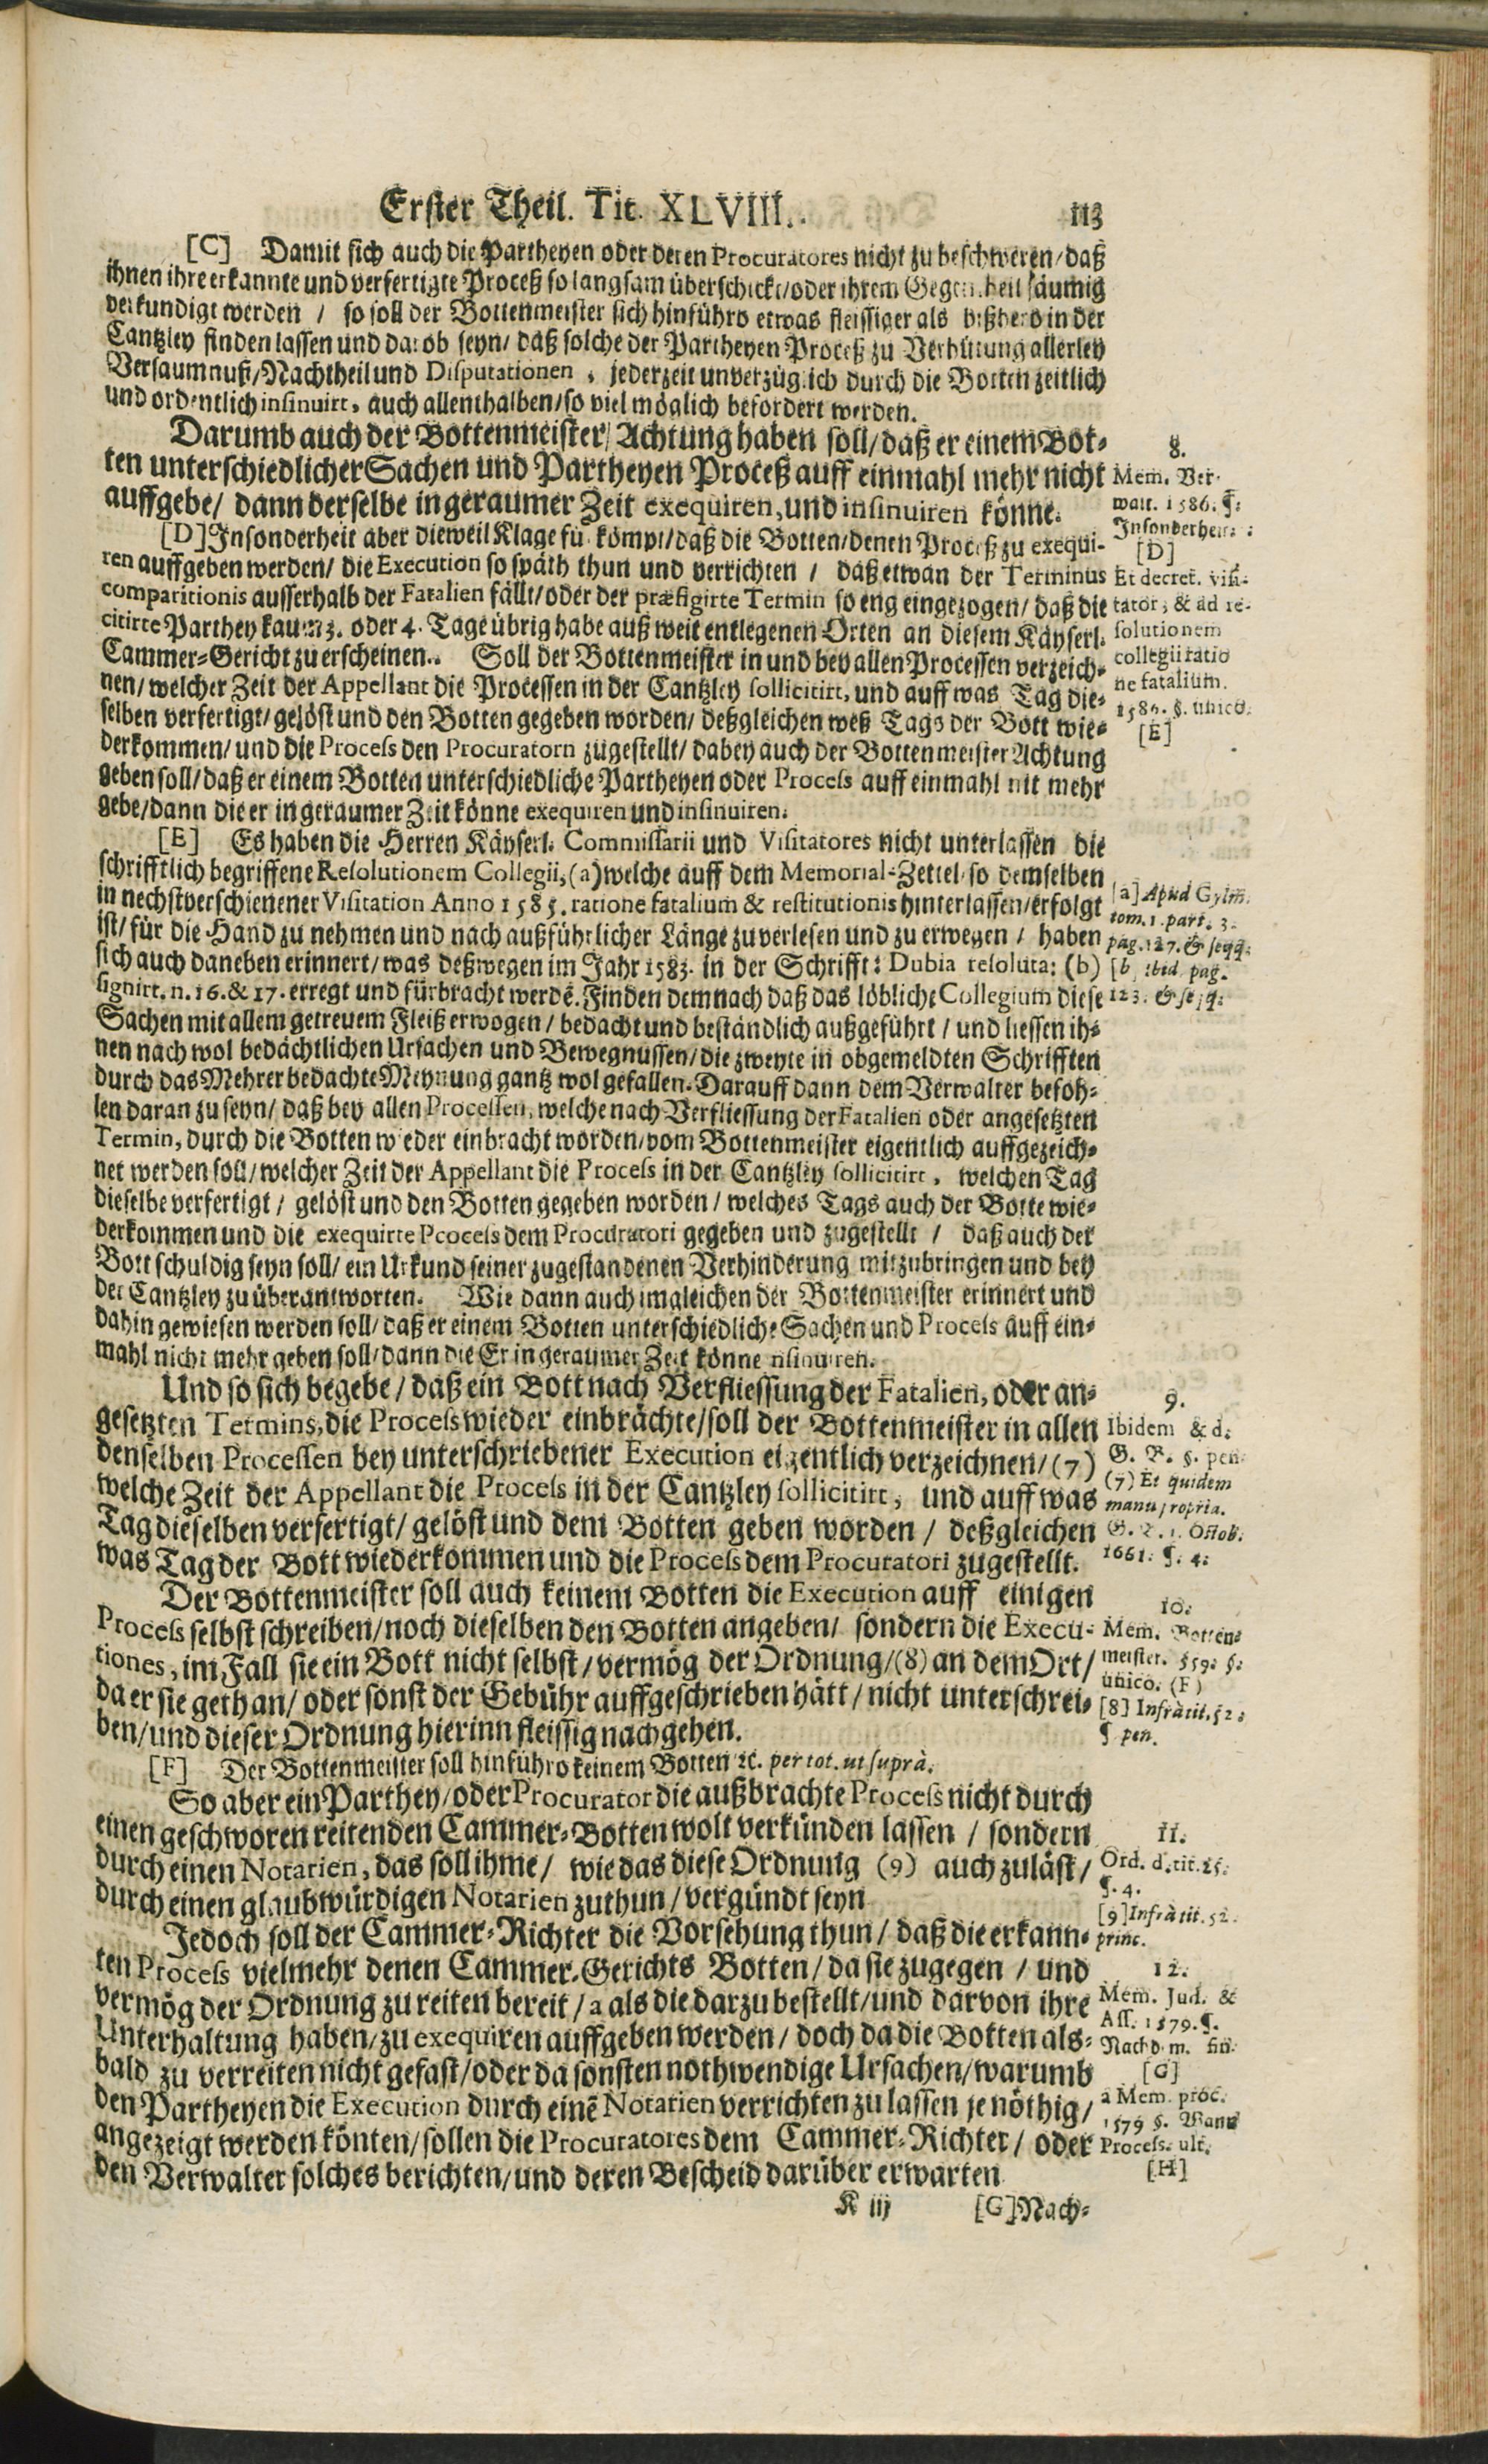 Erster Theil. Tit. XLVIII. 113
[C] Damit sich auch die Partheyen oder deren Procuratores nicht zu beschweren/ daß
ihnen ihre erkannte und verfertigte Proceß so langsam überschickt/ oder ihrem Gegentheil säumig
verkundigt werden / so soll der Bottenmeister sich hinführo etwas fleissiger als bißhero in der
Cantzley finden lassen und darob seyn/ daß solche der Partheyen Proceß zu Verhütung allerley
Versaumnuß/ Nachtheil und Disputationen, jederzeit unverzüglich durch die Botten zeitlich
und ordentlich insinuirt, auch allenthalben/ so viel möglich befördert werden.
Darumb auch der Bottenmeister/ Achtung haben soll/ daß er einem Bot-
ten unterschiedlicher Sachen und Partheyen Proceß auff einmahl mehr nicht
auffgebe/ dann derselbe in geraumer Zeit exequiren, und insinuiren könne.
8.
Mem. Ver-
walt. 1586. ¶:
Insonderheit:
[D]
[D] Insonderheit aber dieweil Klage fü kömpt/ daß die Botten/ denen Proceß zu exequi-
ren auffgeben werden/ die Execution so späth thun und verrichten / daß etwan der Terminus
comparitionis ausserhalb der Fatalien fällt/ oder der præfigirte Termin so eng eingezogen/ daß die
citirte Parthey kaum 3. oder 4. Tage übrig habe auß weit entlegenen Orten an diesem Käyserl.
Cammer-Gericht zu erscheinen.. Soll der Bottenmeister in und bey allen Processen verzeich-
nen/ welcher Zeit der Appellant die Processen in der Cantzley sollicitirt, und auff was Tag die-
selben verfertigt/ gelöst und den Botten gegeben worden/ deßgleichen weß Tags der Bott wie-
derkommen/ und die Process den Procuratorn zugestellt/ dabey auch der Bottenmeister Achtung
geben soll/ daß er einem Botten unterschiedliche Partheyen oder Process auff einmahl nit mehr
gebe/ dann die er in geraumer Zeit könne exequiren und insinuiren.
Et decret. visi-
tator, & ad re-
solutionem
collegii ratio
ne fatalium.
1586. §. unico.
[E]
[E] Es haben die Herren Käyserl. Commissarii und Visitatores nicht unterlassen die
schrifftlich begriffene Resolutionem Collegii, (a) welche auff dem Memorial-Zettel so demselben
in nechstverschienener Visitation Anno 1585. ratione fatalium & restitutionis hinterlassen/ erfolgt
ist/ für die Hand zu nehmen und nach außführlicher Länge zu verlesen und zu erwegen / haben
sich auch daneben erinnert/ was deßwegen im Jahr 1583. in der Schrifft: Dubia resoluta: (b)
signirt. n. 16. & 17. erregt und fürbracht werdē. Finden demnach daß das löbliche Collegium diese
Sachen mit allem getreuem Fleiß erwogen / bedacht und beständlich außgeführt / und liessen ih-
nen nach wol bedächtlichen Ursachen und Bewegnussen/ die zweyte in obgemeldten Schrifften
durch das Mehrer bedachte Meynung gantz wol gefallen. Darauff dann dem Verwalter befoh-
len daran zu seyn/ daß bey allen Processen, welche nach Verfliessung der Fatalien oder angesetzten
Termin, durch die Botten wieder einbracht worden/ vom Bottenmeister eigentlich auffgezeich-
net werden soll/ welcher Zeit der Appellant die Process in der Cantzley sollicitirt, welchen Tag
dieselbe verfertigt / gelöst und den Botten gegeben worden / welches Tags auch der Botte wie-
derkommen und die exequirte Pcocess dem Procuratori gegeben und zugestellt / daß auch der
Bott schuldig seyn soll/ ein Urkund seiner zugestandenen Verhinderung mitzubringen und bey
der Cantzley zu überantworten. Wie dann auch imgleichen der Bottenmeister erinnert und
dahin gewiesen werden soll/ daß er einem Botten unterschiedliche Sachen und Process auff ein-
mahl nicht mehr geben soll/ dann die Er in geraumer Zeit könne nsinuiren.
[a] Apud Gylm.
tom. 1. part. 3.
pag. 127. & seqq.
[b ibid. pag.
123. & seqq.
Und so sich begebe / daß ein Bott nach Verfliessung der Fatalien, oder an-
gesetzten Termins, die Process wieder einbrächte/ soll der Bottenmeister in allen
denselben Processen bey unterschriebener Execution eigentlich verzeichnen/ (7)
welche Zeit der Appellant die Process in der Cantzley sollicitirt, und auff was
Tag dieselben verfertigt/ gelöst und dem Botten geben worden / deßgleichen
was Tag der Bott wiederkommen und die Process dem Procuratori zugestellt.
9.
Ibidem & d.
G. B. §. pen.
(7) Et quidem
manu propria.
G. B. 1. Octob.
1661. ¶. 4.
Der Bottenmeister soll auch keinem Botten die Execution auff einigen
Process selbst schreiben/ noch dieselben den Botten angeben/ sondern die Execu-
tiones, im Fall sie ein Bott nicht selbst/ vermög der Ordnung/ (8) an dem Ort/
da er sie gethan/ oder sonst der Gebühr auffgeschrieben hätt / nicht unterschrei-
ben/ und dieser Ordnung hierinn fleissig nachgehen.
10.
Mem. Botten-
meister. 559. §.
unico. (F)
[8] Infrà tit. 52.
¶ pen.
[F] Der Bottenmeister soll hinführo keinem Botten ꝛc. per tot. ut suprà.
So aber ein Parthey/ oder Procurator die außbrachte Process nicht durch
einen geschworen reitenden Cammer-Botten wolt verkünden lassen / sondern
durch einen Notarien, das soll ihme/ wie das diese Ordnung (9) auch zuläst/
durch einen glaubwürdigen Notarien zuthun / vergündt seyn
11.
Ord. d. tit. 25.
¶. 4.
[9] Infrà tit. 52.
princ.
Jedoch soll der Cammer-Richter die Vorsehung thun / daß die erkann-
ten Process vielmehr denen Cammer-Gerichts Botten/ da sie zugegen / und
vermög der Ordnung zu reiten bereit / a als die darzu bestellt/ und darvon ihre
Unterhaltung haben/ zu exequiren auffgeben werden / doch da die Botten als-
bald zu verreiten nicht gefast/ oder da sonsten nothwendige Ursachen/ warumb
den Partheyen die Execution durch einē Notarien verrichten zu lassen je nöthig/
angezeigt werden könten/ sollen die Procuratores dem Cammer-Richter / oder
den Verwalter solches berichten/ und deren Bescheid darüber erwarten
12.
Mem. Jud. &
Ass. 1579. ¶.
Nachdem. fin.
[G]
a Mem. proc.
1579 §. Wann
Process. ult.
[H]
K iij [G] Nach-